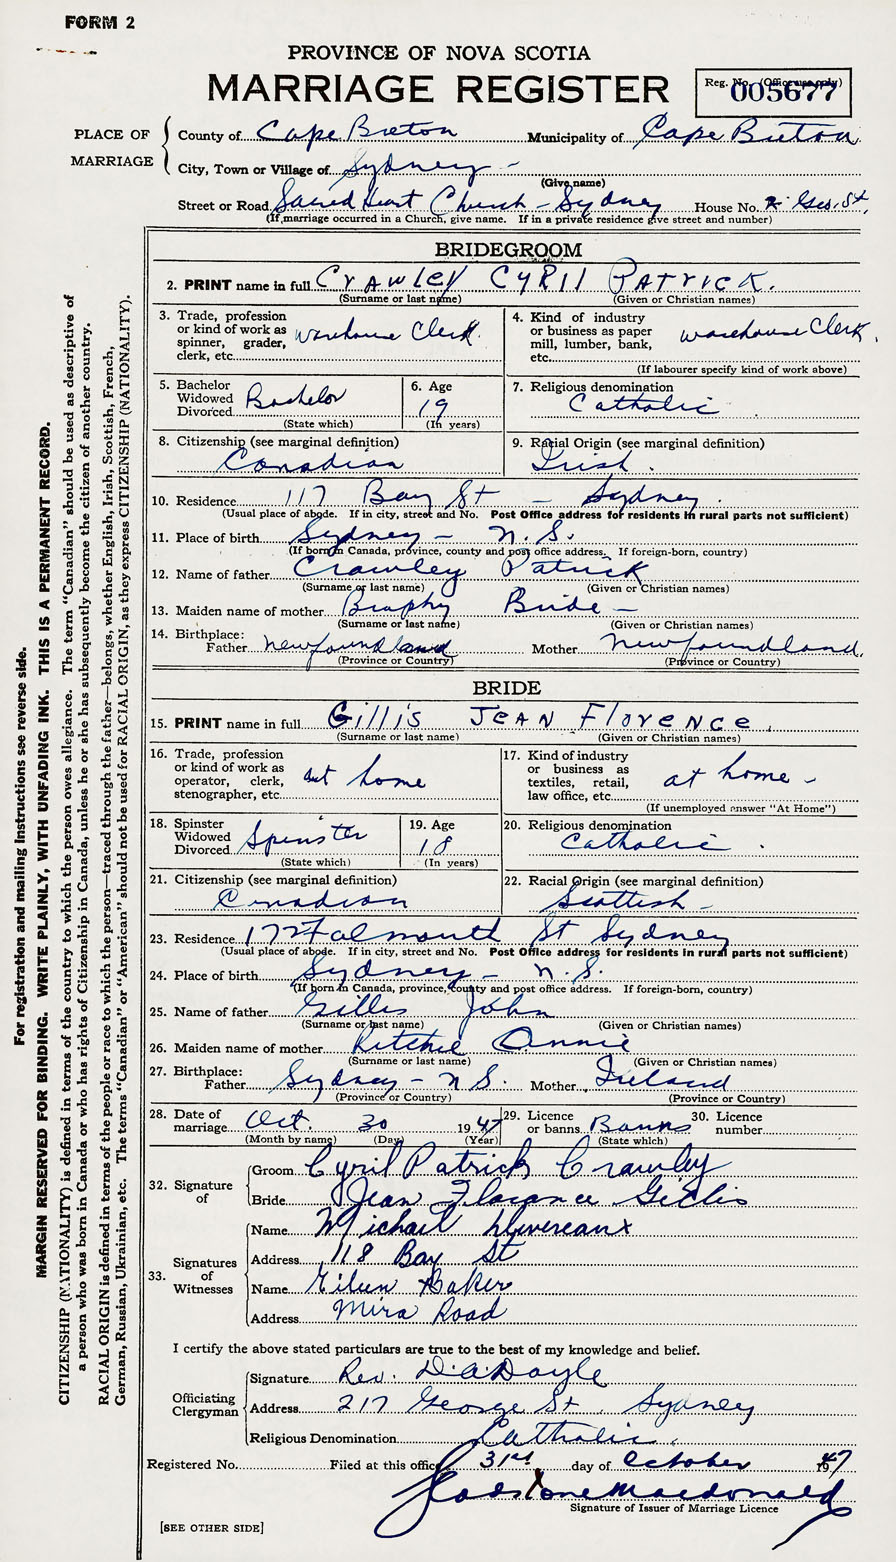 FORM 2
PROVINCE OF NOVA SCOTIA
MARRIAGE REGISTER
Reg. No. (Office use only)
005677
PLACE OF MARRIAGE
County of Cape Breton Municipality of Cape Breton
City, Town or Village of Sydney -
(Give name)
Street or Road Sacred Heart Church - Sydney House No. Geo. St,
(If marriage occurred in a Church, give name. If in a private residence give street and number)
BRIDEGROOM
2. PRINT name in full Crawley Cyril Patrick.
(Surname or last name) (Given or Christian names)
3. Trade, profession or kind of work as spinner, grader, clerk, etc. warehouse Clerk.
4. Kind of industry or business as paper mill, lumber, bank, etc. warehouse Clerk.
(If labourer specify kind of work above)
5. Bachelor Widowed Divorced Bachelor
(State which)
6. Age 19
(In years)
7. Religious denomination Catholic
8. Citizenship (see marginal definition) Canadian
9. Racial Origin (see marginal definition) Irish.
10. Residence 117 Bay St - Sydney.
(Usual place of abode. If in city, street and No. Post Office address for residents in rural parts not sufficient)
11. Place of birth Sydney - N.S.
(If born in Canada, province, county and post office address. If foreign-born, country)
12. Name of father Crawley Patrick
(Surname or last name) (Given or Christian names)
13. Maiden name of mother Brophy Bride -
(Surname or last name) (Given or Christian names)
14. Birthplace: Father Newfoundland Mother Newfoundland.
(Province or Country) (Province or Country)
BRIDE
15. PRINT name in full Gillis Jean Florence.
(Surname or last name) (Given or Christian names)
16. Trade, profession or kind of work as operator, clerk, stenographer, etc. at home
17. Kind of industry or business as textiles, retail, law office, etc. at home -
(If unemployed answer "At Home")
18. Spinster Widowed Divorced Spinster
(State which)
19. Age 18
(In years)
20. Religious denomination Catholic.
21. Citizenship (see marginal definition) Canadian
22. Racial Origin (see marginal definition) Scottish -
23. Residence 172 Falmouth St Sydney
(Usual place of abode. If in city, street and No. Post Office address for residents in rural parts not sufficient)
24. Place of birth Sydney - N.S.
(If born in Canada, province, county and post office address. If foreign-born, country)
25. Name of father Gillis John
(Surname or last name) (Given or Christian names)
26. Maiden name of mother Ritchie Annie
(Surname or last name) (Given or Christian names)
27. Birthplace: Father Sydney - N.S. Mother Ireland
(Province or Country) (Province or Country)
28. Date of marriage Oct. 30 1947
(Month by name) (Day) (Year)
29. Licence or banns Banns
(State which)
30. Licence number
32. Signature of
Groom Cyril Patrick Crawley
Bride Jean Florance Gillis
33. Signatures of Witnesses
Name Michael Devereaux
Address 118 Bay St
Name Eileen Baker
Address Mira Road
I certify the above stated particulars are true to the best of my knowledge and belief.
Officiating Clergyman
Signature Rev. D.A. Doyle
Address 217 George St, Sydney
Religious Denomination Catholic.
Registered No. Filed at this office 31st day of October 1947
Gladstone Macdonald
Signature of Issuer of Marriage Licence
[SEE OTHER SIDE]
For registration and mailing instructions see reverse side.
MARGIN RESERVED FOR BINDING. WRITE PLAINLY, WITH UNFADING INK. THIS IS A PERMANENT RECORD.
CITIZENSHIP (NATIONALITY) is defined in terms of the country to which the person owes allegiance. The term "Canadian" should be used as descriptive of
a person who was born in Canada or who has rights of Citizenship in Canada, unless he or she has subsequently become the citizen of another country.
RACIAL ORIGIN is defined in terms of the people or race to which the person—traced through the father—belongs, whether English, Irish, Scottish, French,
German, Russian, Ukrainian, etc. The terms "Canadian" or "American" should not be used for RACIAL ORIGIN, as they express CITIZENSHIP (NATIONALITY).